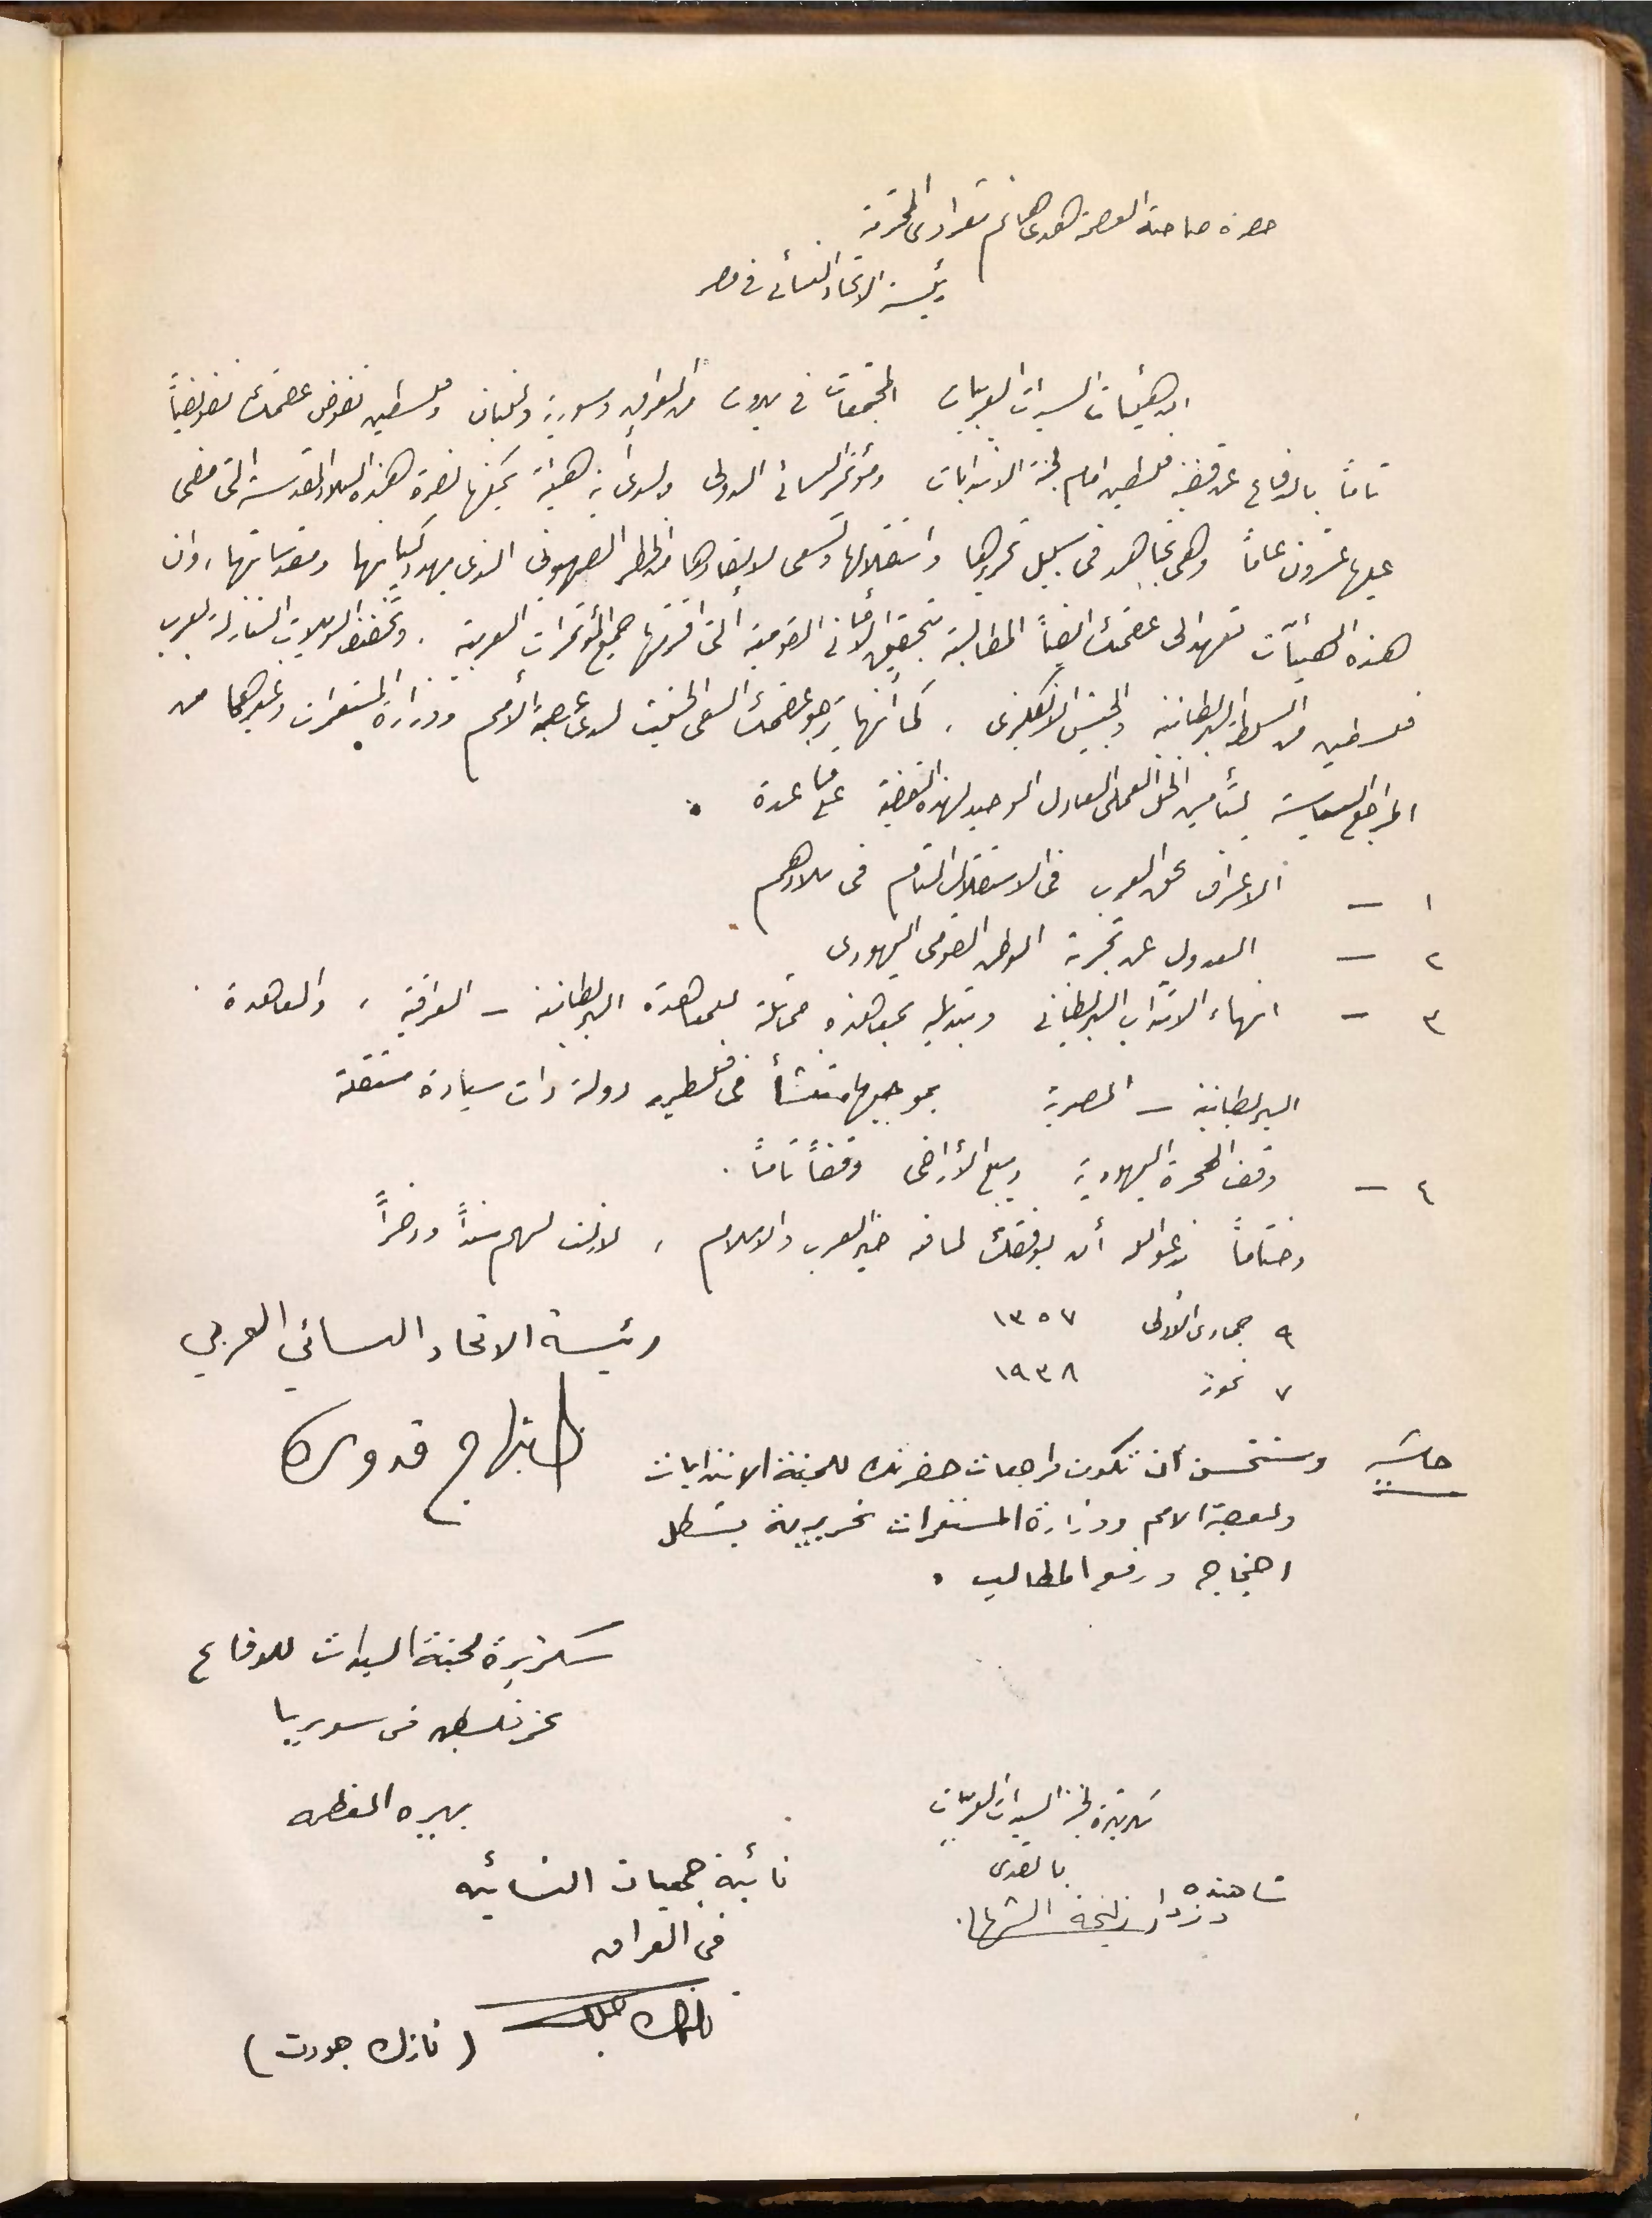 حضرة صاحبة العصمة هدى هانم شعراوى المحترمة
رئيسة الاتحاد النسائى فى مصر
ان هيئات السيدات العربيات المجتمعات فى بيروت من العراق وسورية ولبنان وفلسطين تفوض عصمتك تفويضاً
تاماً بالدفاع عن قضية فلسطين امام لجنة الانتدابات ومؤتمر النسائى الدولى ولدى أية هيئة يمكنها نصرة هذه البلاد المقدسة التى مضى
عليها عشرون عاماً وهى تجاهد فى سبيل تحريرها واستقلالها وتسعى لانقاذها من الخطر الصهيونى الذى يهدد كيانها ومقدساتها، وان
هذه الهيئات تعهد الى عصمتك ايضاً المطالبة بتحقيق الأمانى القومية التى اقرتها جميع المؤتمرات العربية . وتخفيف الويلات النازلة بعرب
فلسطين من السلطة البريطانية والجيش الانكليزى ، كما أنها ترجو عصمتك السعى الحثيث لدى عصبة الأمم ووزارة المستعمرات وغيرهما من
المراجع السياسية لتأمين الحل العملى العادل الوحيد لهذه القضية على قاعدة .
١ – الاعتراف بحق العرب فى الاستقلال التام فى بلادهم
٢ – العدول عن تجربة الوطن القومى اليهودى
٣ – انهاء الانتداب البريطانى وتبديله بمعاهدة مماثلة للمعاهدة البريطانية – العراقية ، والمعاهدة
البريطانية – المصرية بموجبها تنشأ فى فلسطين دولة ذات سيادة مستقلة
٤ – وقف الهجرة اليهودية وبيع الأراضى وقفاً تاماً .
وختاماً ندعو الله أن يوفقك لما فيه خير العرب والاسلام ، لازلت لهم سنداً وذخراً
٩ جمادى الأولى ١٣٥٧
٧ تموز ١٩٣٨
رئيسة الاتحاد النسائي العربي
ابتهاج قدوره
حاشية ونستحسن أن تكون مراجعات حضرتك للجنة الانتدابات
ولعصبة الامم ووزارة المستعمرات تحريرية بشكل
احتجاج ورفع المطالب .
سكرتيرة لجنة السيدات للدفاع
عن فلسطين فى سوريا
بهيره العظمه
سكرتيرة لجنة السيدات العربيات
بالقدس
شاهنده دزدار زليخة الشهابي
نائبة جمعيات النسائيه
فى العراق
(نازك جودت)